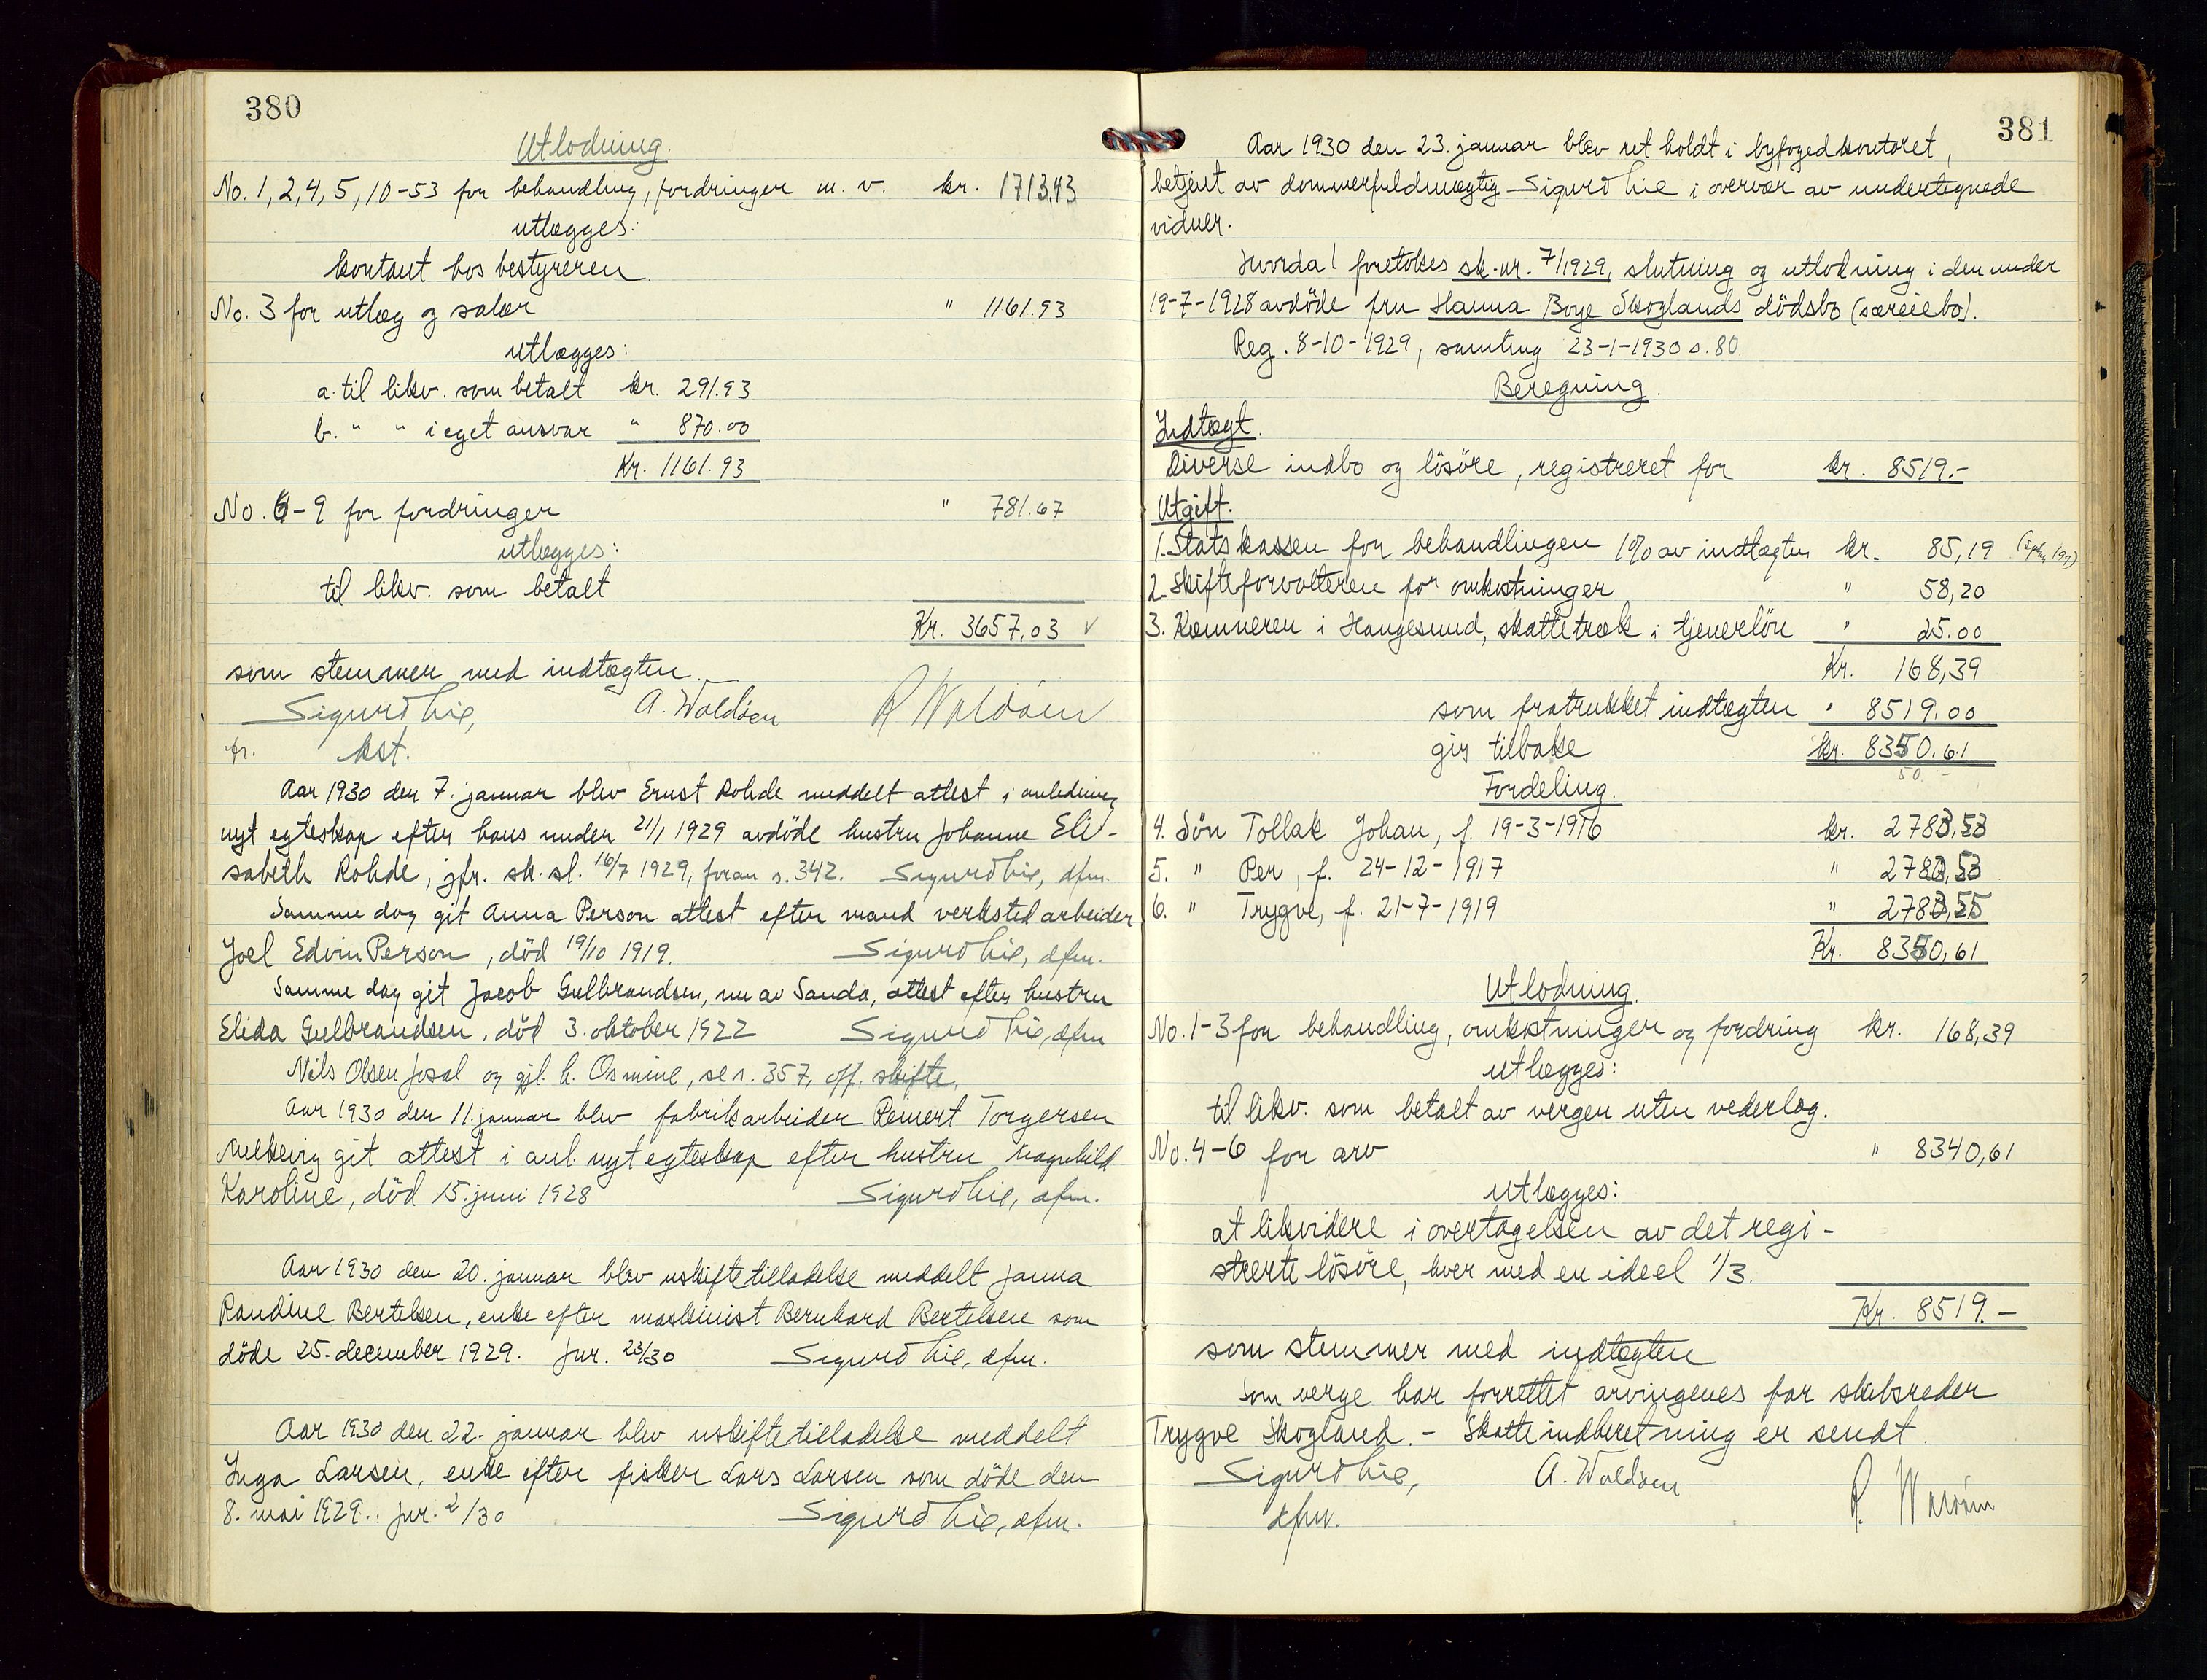 380
Utlodning.
No. 1, 2, 4, 5, 10-53 for behandling, fordringer m. v. kr. 1713,43
utlægges:
kontant hos bestyreren
No. 3 for utlæg og salær " 1161.93
utlægges:
a. til likv. som betalt kr. 291.93
b. " " i eget ansvar " 870.00
Kr. 1161.93
No. 6-9 for fordringer " 781.67
utlægges:
til likv. som betalt
Kr. 3657,03 ✓
som stemmer med indtægten.
Sigurd Lie, A. Waldøen R. Waldøen
kst.
Aar 1930 den 7. januar blev Ernst Rohde meddelt attest i anledning
nyt egteskap efter hans under 21/1 1929 avdöde hustru Johanne Eli-
sabeth Rohde, jfr. sk. sl. 16/7 1929, foran s. 342. Sigurd Lie, dfm.
Samme dag git Anna Person attest efter mand verkstedarbeider
Joel Edvin Person, död 19/10 1919. Sigurd Lie, dfm.
Samme dag git Jacob Gulbrandsen, nu av Sauda, attest efter hustru
Elida Gulbrandsen, död 3. oktober 1922 Sigurd Lie, dfm
Nils Olsen Josal og gjl. h. Osmine, se s. 357, off. skifte.
Aar 1930 den 11. januar blev fabrikarbeider Reinert Torgersen
git attest i anl. nyt egteskap efter hustru Magnhild
Karoline, död 15. juni 1928 Sigurd Lie, dfm.
Aar 1930 den 20. januar blev uskiftetilladelse meddelt Janna
Randine Bertelsen, enke efter maskinist Bernhard Bertelsen som
döde 25. december 1929. Jnr. 23/30 Sigurd Lie, dfm.
Aar 1930 den 22. januar blev uskiftetilladelse meddelt
Inga Larsen, enke efter fisker Lars Larsen som döde den
8. mai 1929. Jnr. 2/30 Sigurd Lie, dfm.
381
Aar 1930 den 23. januar blev ret holdt i byfogedkontoret,
betjent av dommerfuldmægtig Sigurd Lie i overvær av undertegnede
vidner.
Hvorda! foretokes sk.nr. 7/1929, slutning og utlodning i den under
19-7-1928 avdöde fru Hanna Boye Skoglands dödsbo (særeiebo).
Reg. 8-10-1929, samling 23-1-1930 s. 80.
Beregning.
Indtægt.
Diverse indbo og lösöre, registreret for kr. 8519.-
Utgift.
1. Statskassen for behandlingen 1% av indtægten kr. 85,19
2. Skifteforvalteren for omkostninger " 58,20
3. Kæmneren i Haugesund, skattetræk i tjenerlön " 25.00
Kr. 168,39
som fratrukket indtægten " 8519.00
gir tilbake kr. 8350.61
50
Fordeling.
4. Sön Tollak Johan, f. 19-3-1916 kr. 2783,53
5. " Per, f. 24-12-1917 " 2783,53
6. " Trygve, f. 21-7-1919 " 2783,55
Kr. 8350,61
Utlodning.
No. 1-3 for behandling, omkostninger og fordring kr. 168,39
utlægges:
til likv. som betalt av vergen uten vederlag.
No. 4-6 for arv " 8340,61
utlægges:
at likvidere i overtagelsen av det regi-
strerte lösöre, hver med en ideel 1/3.
Kr. 8519.-
som stemmer med indtægten
Som verge har forrettet arvingenes far skibsreder
Trygve Skogland. - Skatteindberetning er sendt.
Sigurd Lie, A. Waldøen R. Waldøen
dfm.